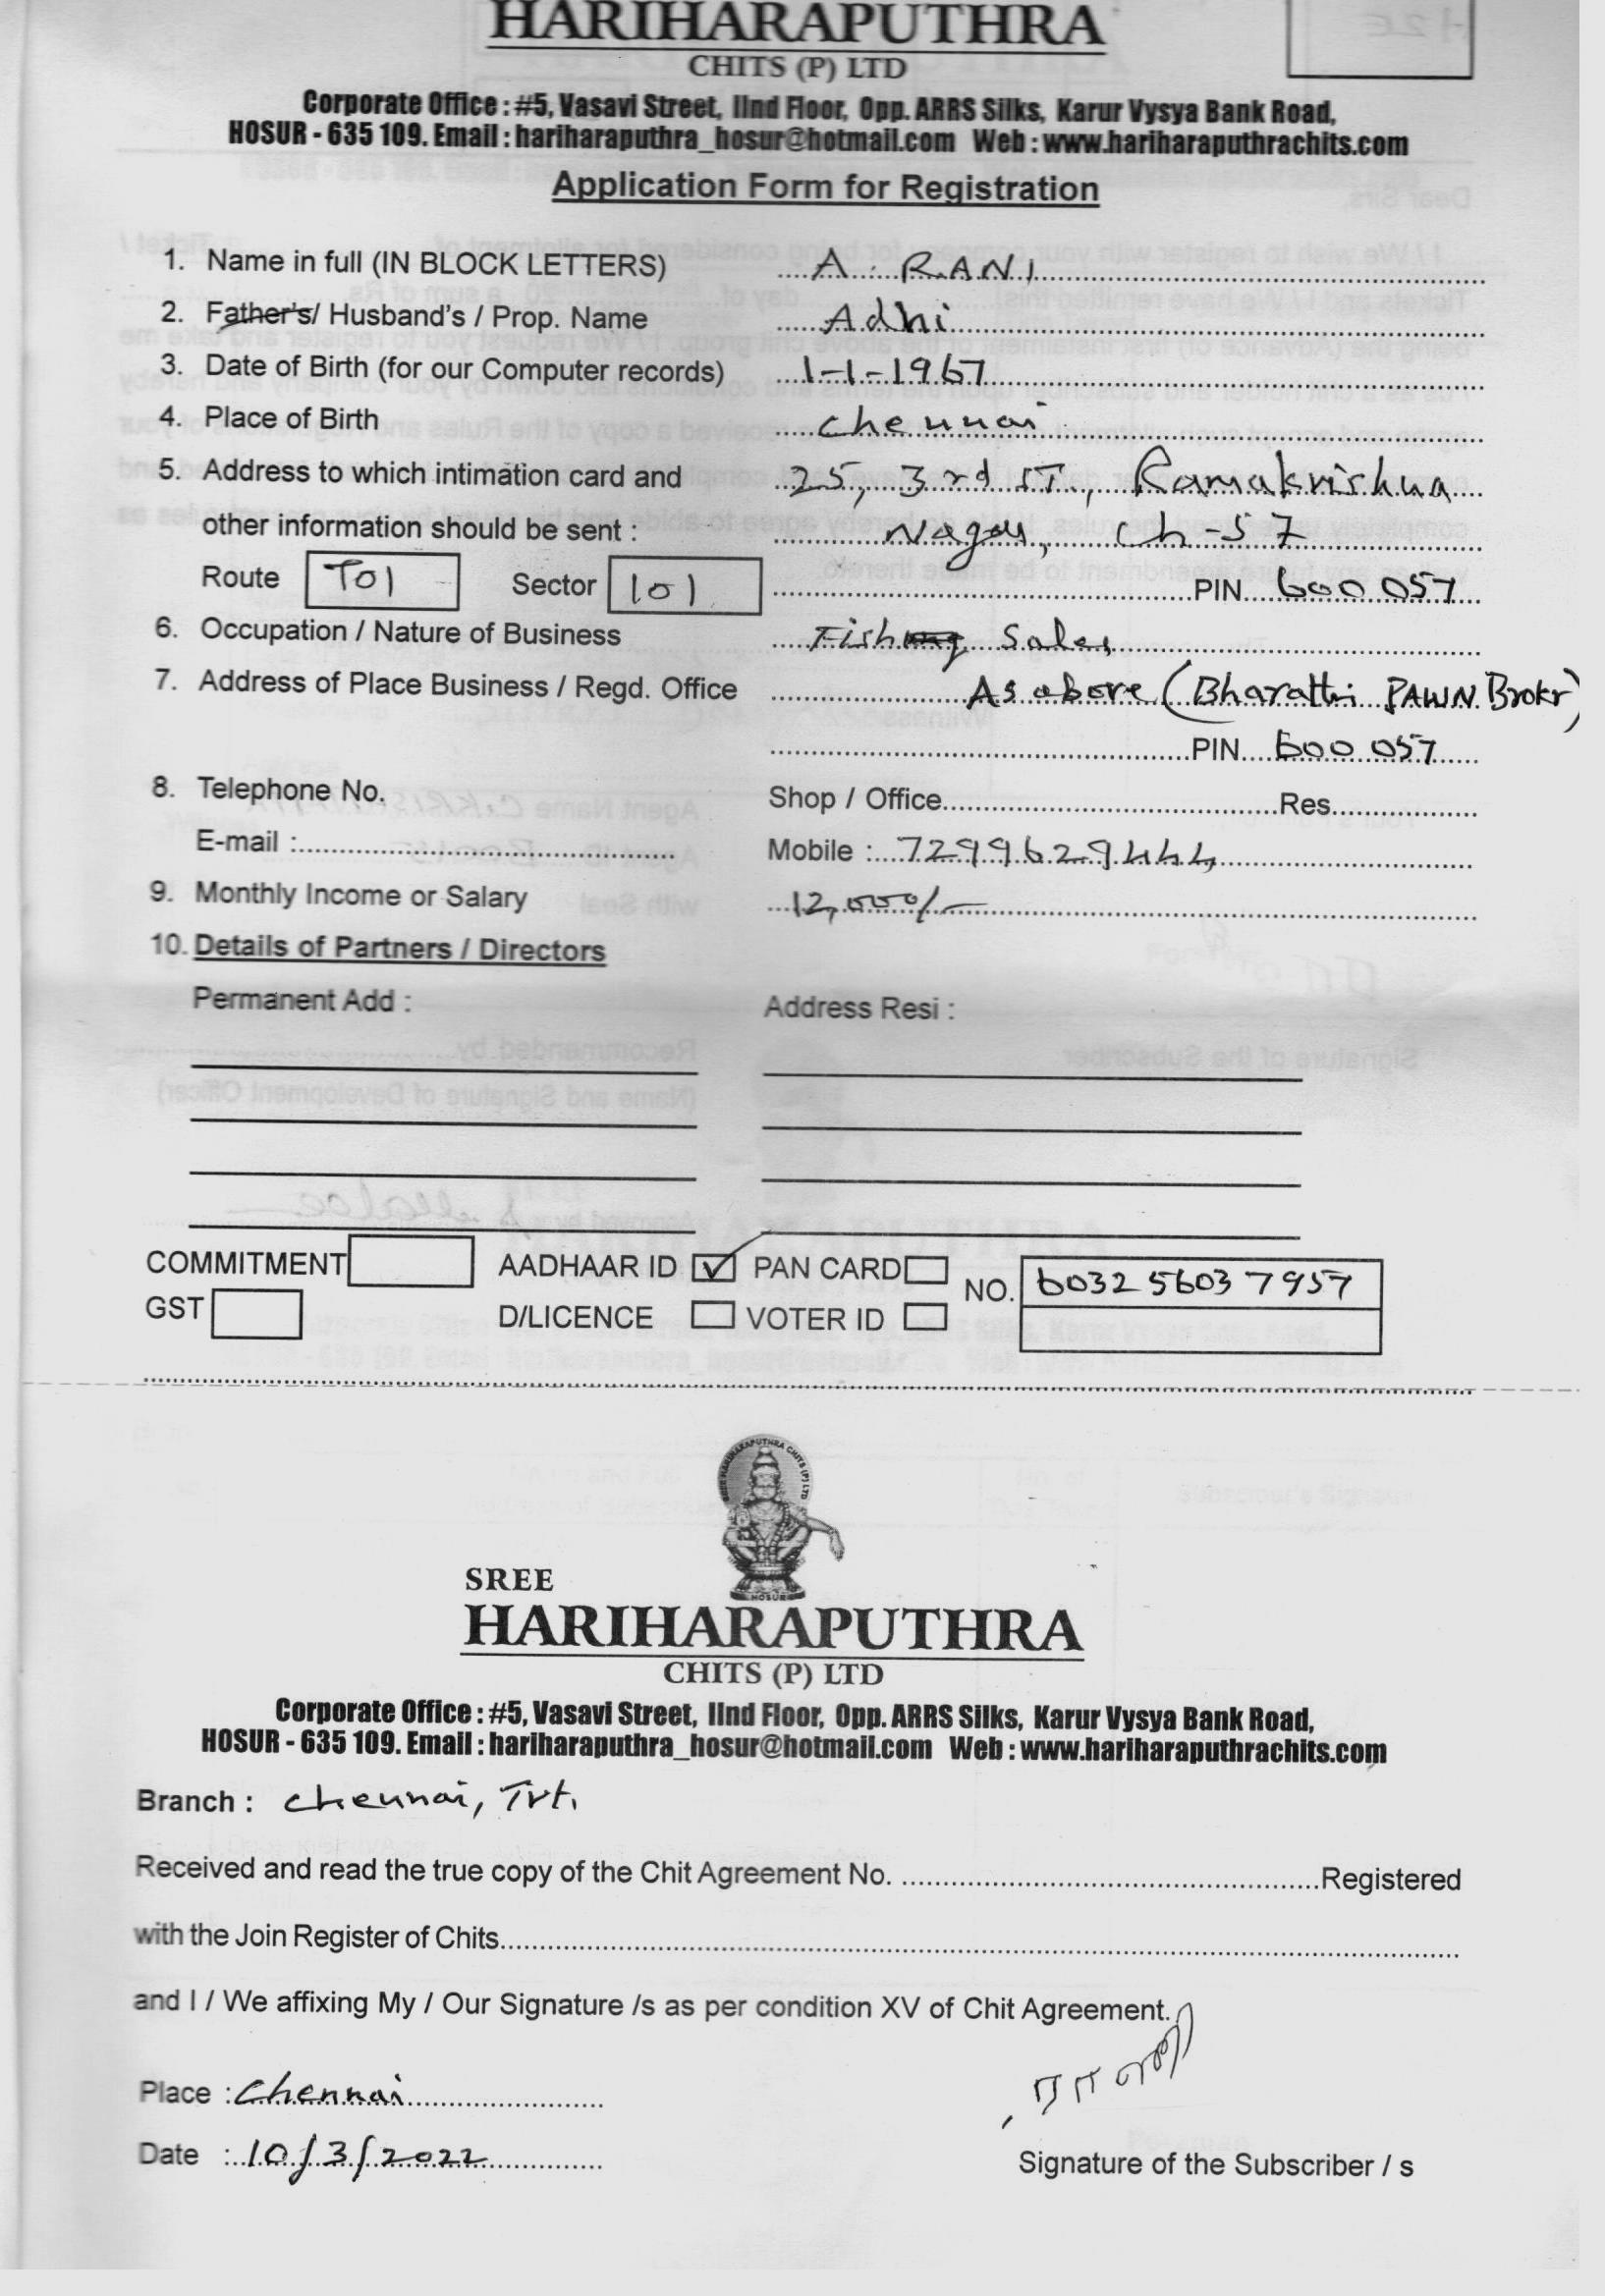 HARIHARAPUTHRA
CHITS (P) LTD
Corporate Office : #5, Vasavi Street, IInd Floor, Opp. ARRS Silks, Karur Vysya Bank Road,
HOSUR - 635 109. Email : hariharaputhra_hosur@hotmail.com Web : www.hariharaputhrachits.com
Application Form for Registration
1. Name in full (IN BLOCK LETTERS) A. RANI
2. Father's/ Husband's / Prop. Name Adhi
3. Date of Birth (for our Computer records) 1-1-1967
4. Place of Birth Chennai
5. Address to which intimation card and 25, 3rd ST, Ramakrishna
other information should be sent : Nagar, Ch-57
Route T01 Sector 101 PIN 600 057
6. Occupation / Nature of Business Fish Sales
7. Address of Place Business / Regd. Office As above (Bharathi PAWN Brokr)
PIN 600 057
8. Telephone No. Shop / Office Res
E-mail : Mobile : 7299629444
9. Monthly Income or Salary 12,000/-
10. Details of Partners / Directors
Permanent Add : Address Resi :
COMMITMENT AADHAAR ID ✓ PAN CARD NO. 6032 5603 7957
GST D/LICENCE VOTER ID
SREE
HARIHARAPUTHRA
CHITS (P) LTD
Corporate Office : #5, Vasavi Street, IInd Floor, Opp. ARRS Silks, Karur Vysya Bank Road,
HOSUR - 635 109. Email : hariharaputhra_hosur@hotmail.com Web : www.hariharaputhrachits.com
Branch : Chennai, Tvt.
Received and read the true copy of the Chit Agreement No. Registered
with the Join Register of Chits
and I / We affixing My / Our Signature /s as per condition XV of Chit Agreement.
Place : Chennai
Date : 10/3/2022
Signature of the Subscriber / s